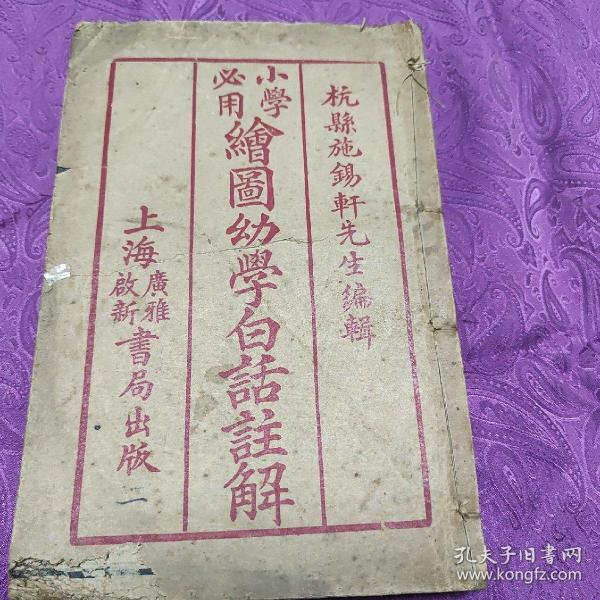 杭縣施錫軒先生編輯
小學必用繪圖幼學白話註解
上海廣雅啟新書局出版
二
孔夫子旧书网
www.kongfz.com